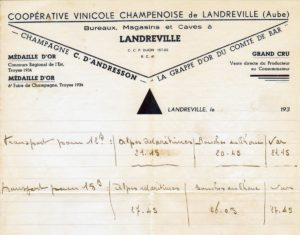 COOPÉRATIVE VINICOLE CHAMPENOISE de LANDREVILLE (Aube)
Bureaux, Magasins et Caves à
LANDREVILLE
C. C. P. DIJON
R. C.
CHAMPAGNE C. D'ANDRESSON LA GRAPPE D'OR DU COMTE DE BAR
MÉDAILLE D'OR
Concours Régional de l'Est,
Troyes 1934
MÉDAILLE D'OR
Foire de Champagne, Troyes 1934
GRAND CRU
Vente directe du Producteur
au Consommateur
LANDREVILLE, le 193
transport pour 12° : Alpes maritimes Bouches du Rhône Var
21.45 20.45
transport pour 15° : Alpes maritimes Bouches du Rhône Var
27.45